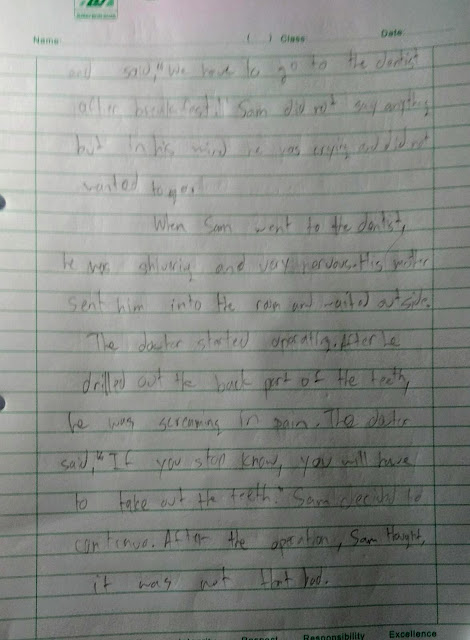 Name ( ) Class Date
and said,"We have to go to the dentist
after breakfest." Sam did not say anything
but in his mind he was crying and did not
wanted to go.
When Sam went to the dentist,
he was shivering and very nervous. His mother
sent him into the room and waited outside.
The doctor started operating. After he
drilled out the back part of the teeth,
he was screaming in pain. The doctor
said,"If you stop know, you will have
to take out the teeth." Sam decided to
continue. After the operation, Sam thought,
it was not that bad.
Respect Responsibility Excellence